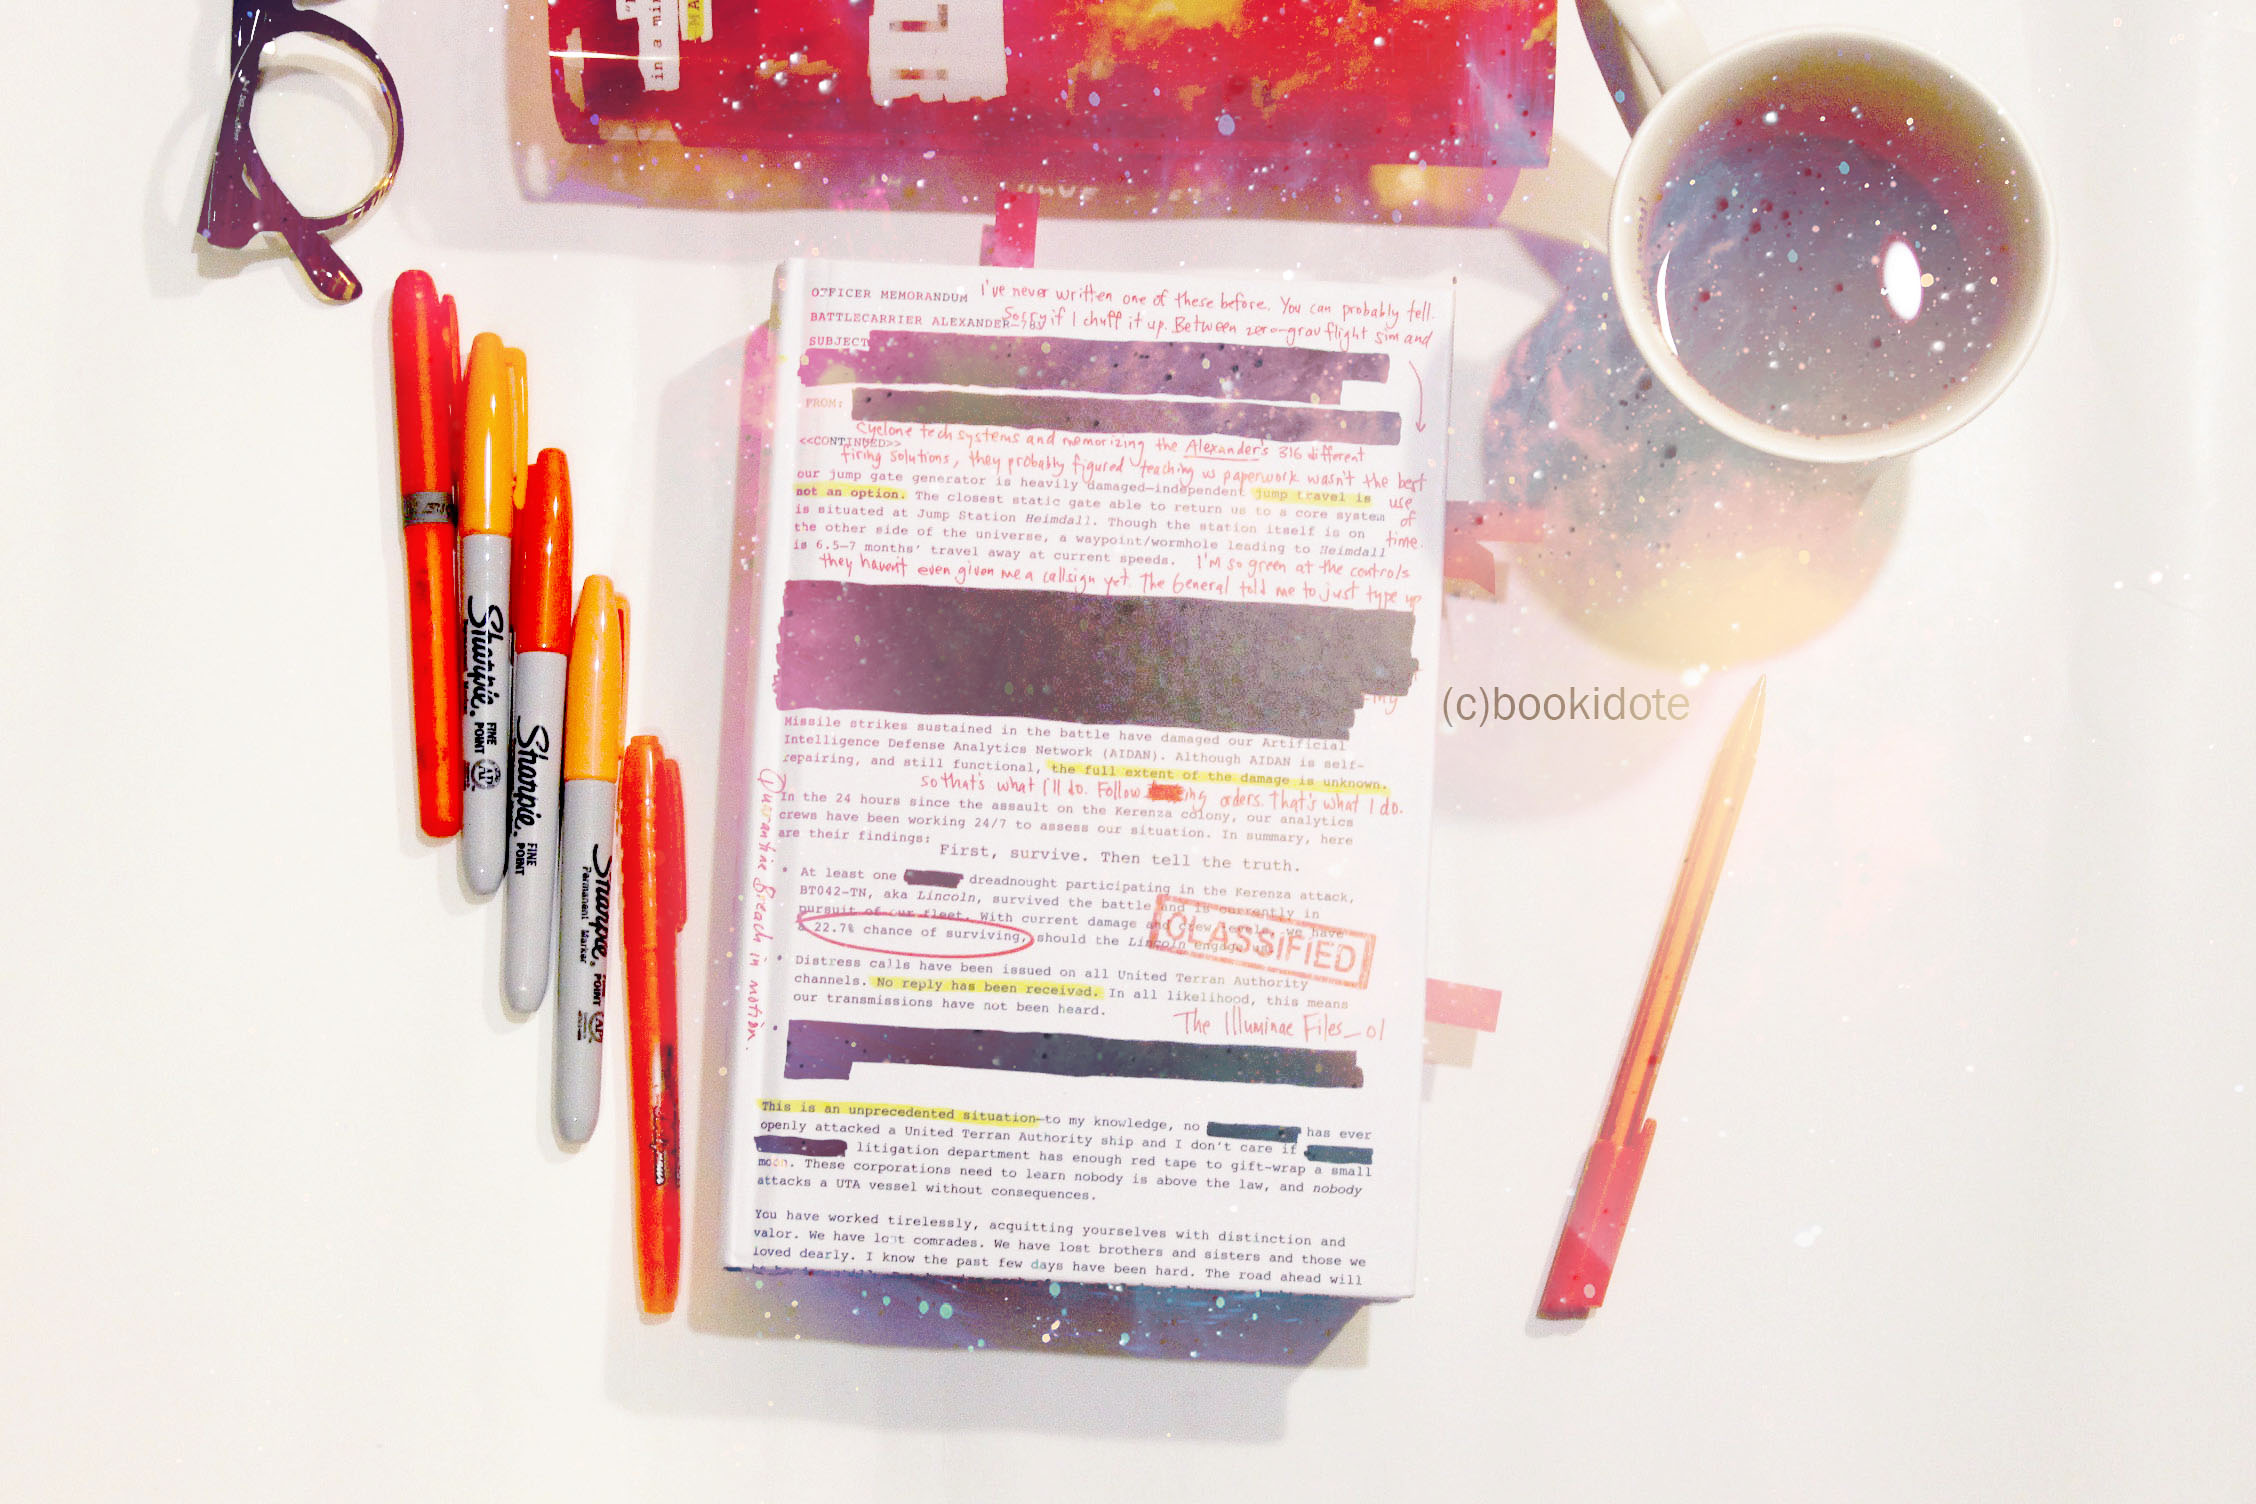 in a mi
MA
OFFICER MEMORANDUM I've never written one of these before. You can probably tell.
BATTLECARRIER ALEXANDER-78V Sorry if I chuff it up. Between zero-grav flight sim and
SUBJECT
FROM:
Cyclone tech systems and memorizing the Alexander's 316 different
<<CONTINUED>>
firing solutions, they probably figured teaching us paperwork wasn't the best
our jump gate generator is heavily damaged—independent jump travel is use
not an option. The closest static gate able to return us to a core system of
is situated at Jump Station Heimdall. Though the station itself is on time.
the other side of the universe, a waypoint/wormhole leading to Heimdall
is 6.5-7 months' travel away at current speeds. I'm so green at the controls
they haven't even given me a callsign yet. The General told me to just type up
my
Missile strikes sustained in the battle have damaged our Artificial
Intelligence Defense Analytics Network (AIDAN). Although AIDAN is self-
repairing, and still functional, the full extent of the damage is unknown.
so that's what I'll do. Follow ing orders. That's what I do.
In the 24 hours since the assault on the Kerenza colony, our analytics
crews have been working 24/7 to assess our situation. In summary, here
are their findings:
First, survive. Then tell the truth.
• At least one dreadnought participating in the Kerenza attack,
BT042-TN, aka Lincoln, survived the battle and is currently in
pursuit of our fleet. With current damage and crew levels, we have
a 22.7% chance of surviving, should the Lincoln engage us.
CLASSIFIED
• Distress calls have been issued on all United Terran Authority
channels. No reply has been received. In all likelihood, this means
our transmissions have not been heard.
The Illuminae Files_01
•
This is an unprecedented situation—to my knowledge, no has ever
openly attacked a United Terran Authority ship and I don't care if
litigation department has enough red tape to gift-wrap a small
moon. These corporations need to learn nobody is above the law, and nobody
attacks a UTA vessel without consequences.
You have worked tirelessly, acquitting yourselves with distinction and
valor. We have lost comrades. We have lost brothers and sisters and those we
loved dearly. I know the past few days have been hard. The road ahead will
Quarantine Breach in motion.
Sharpie.
FINE
POINT
Sharpie.
FINE
POINT
Sharpie.
Permanent Marker
FINE
POINT
(c)bookidote